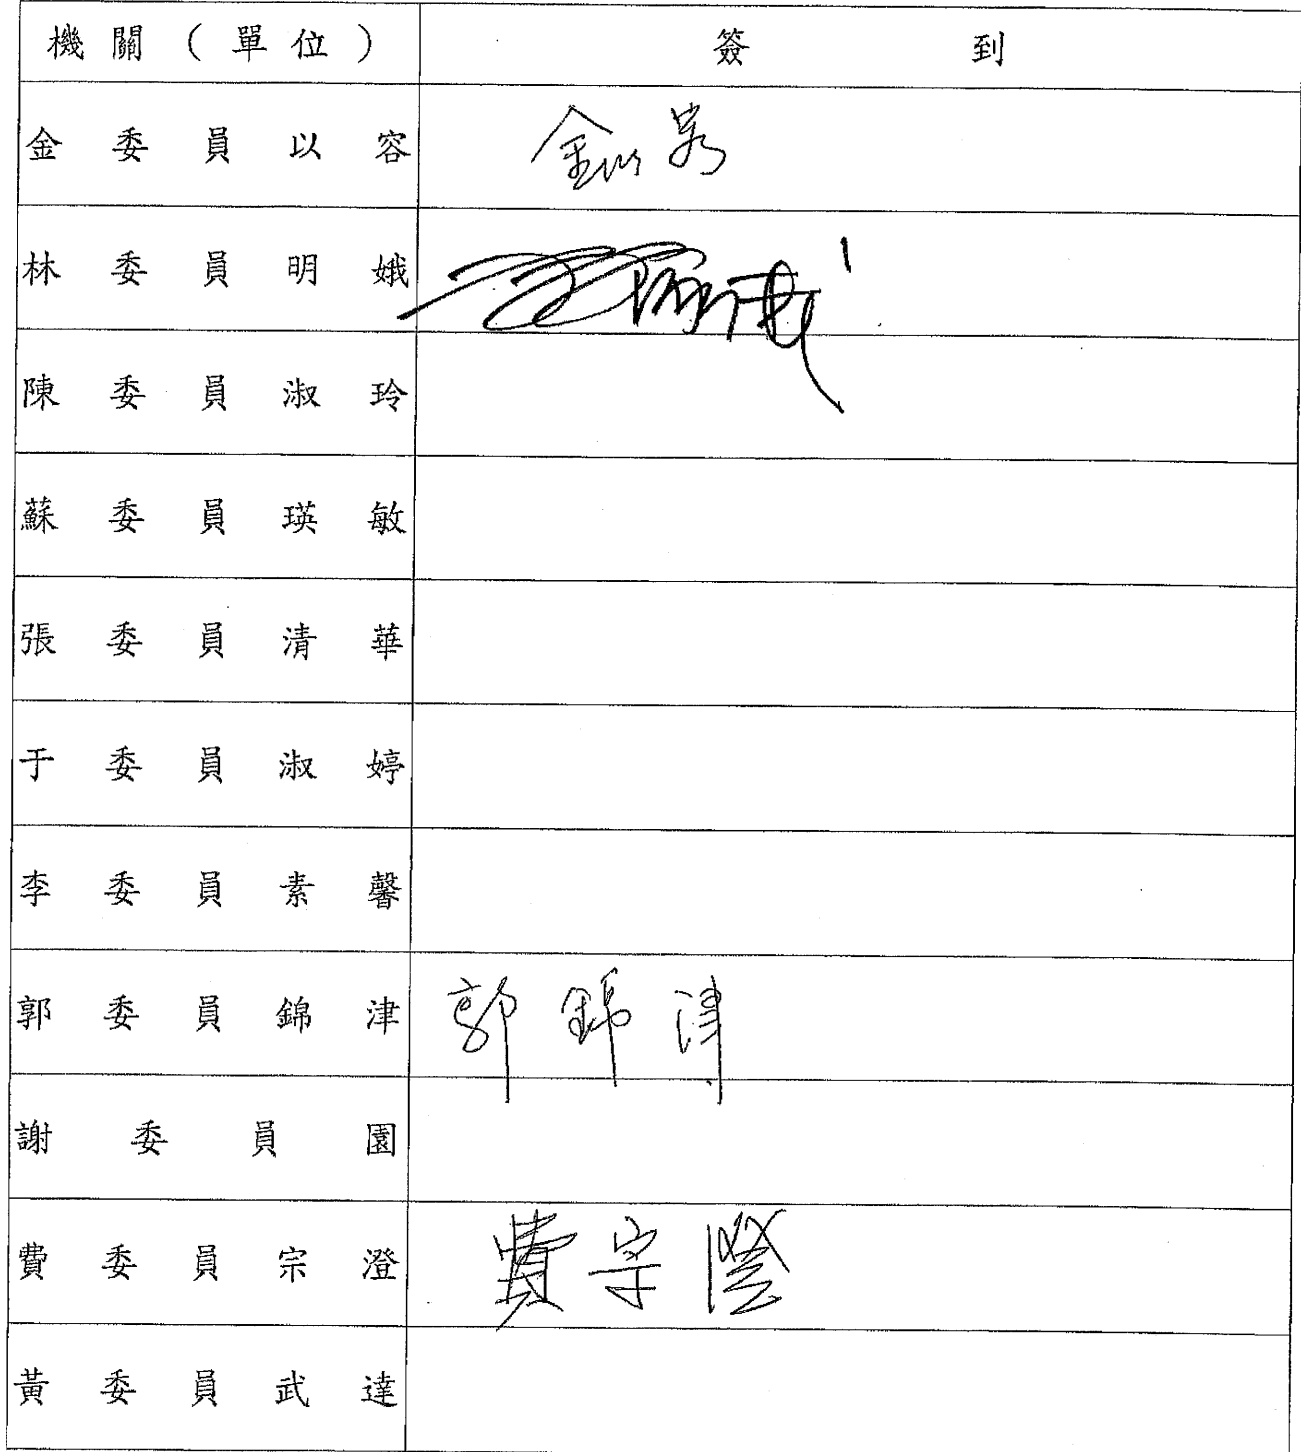 機關（單位） 簽到
金委員以容 金以容
林委員明娥
陳委員淑玲
蘇委員瑛敏
張委員清華
于委員淑婷
李委員素馨
郭委員錦津 郭錦津
謝委員園
費委員宗澄 費宗澄
黃委員武達